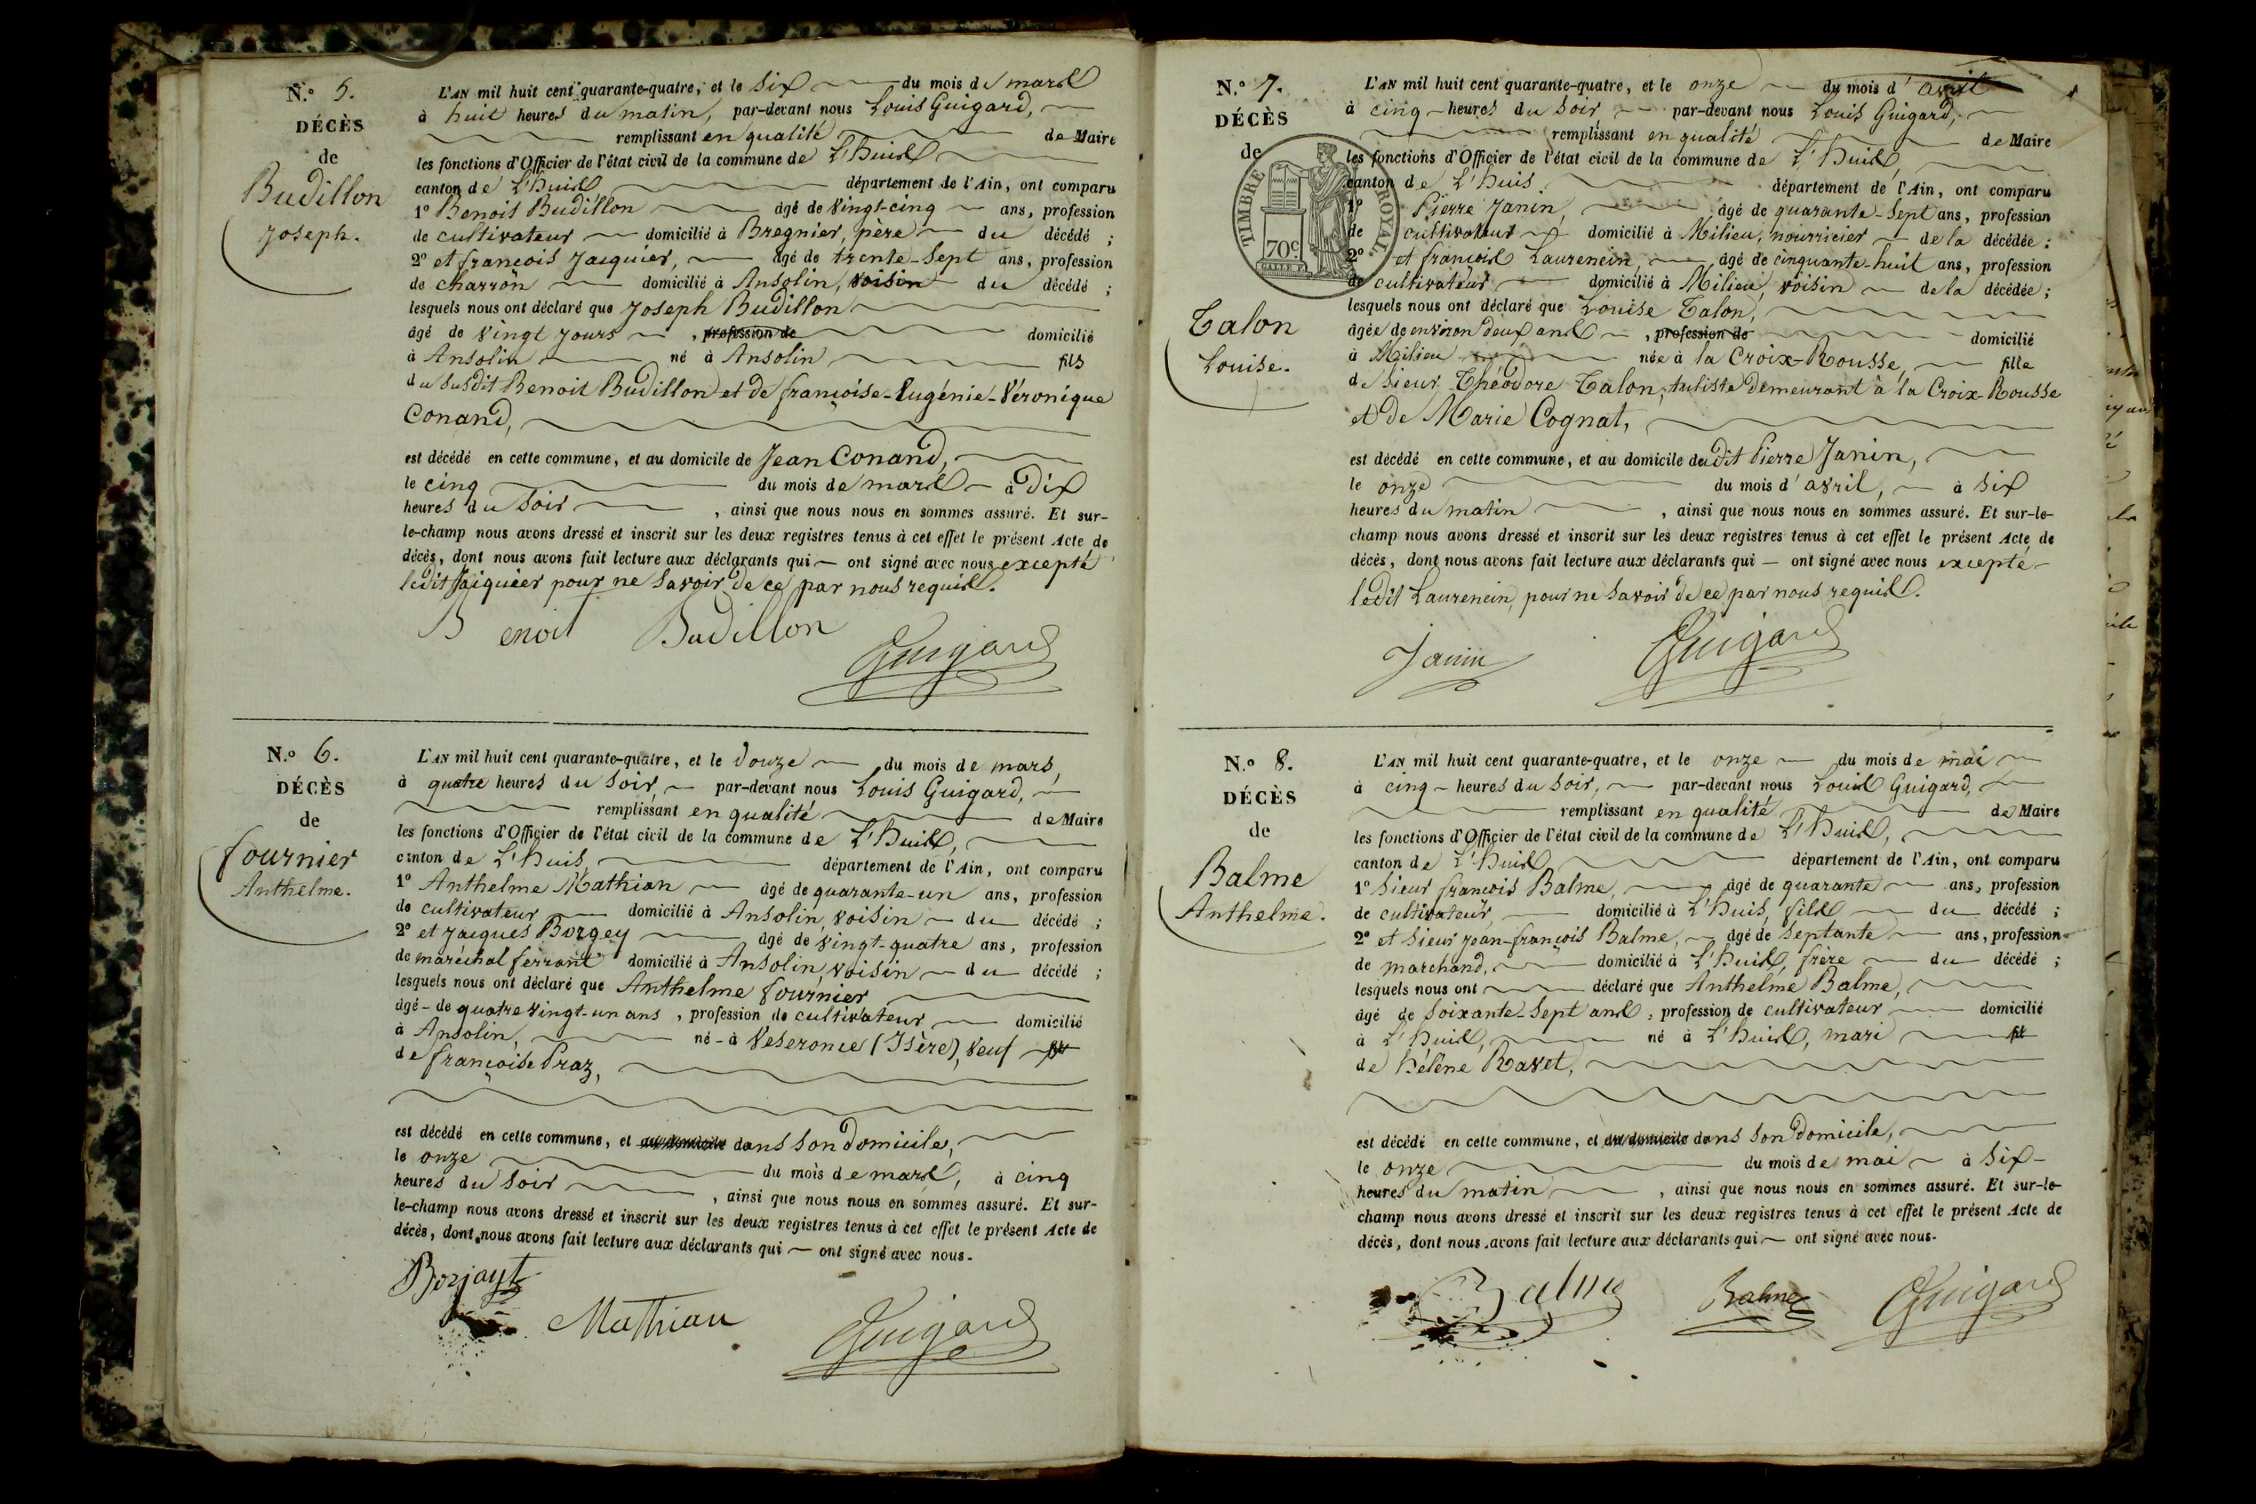 N.° 5.
DÉCÈS
de
Budillon
Joseph.
L'AN mil huit cent quarante-quatre, et le six du mois de mars
à huit heures du matin, par-devant nous Louis Guigard,
remplissant en qualité de Maire
les fonctions d'Officier de l'état civil de la commune de L'huis
canton de L'huis département de l'Ain, ont comparu
1° Benoit Budillon âgé de vingt-cinq ans, profession
de cultivateur domicilié à Bregnier, père du décédé ;
2° et françois Jacquier, âgé de trente-sept ans, profession
de charron domicilié à Ansolin, voisin du décédé ;
lesquels nous ont déclaré que Joseph Budillon
âgé de vingt jours , profession de domicilié
à Ansolin né à Ansolin fils
du susdit Benoit Budillon et de françoise-Eugénie-Véronique
Conand,
est décédé en cette commune, et au domicile de Jean Conand,
le cinq du mois de mars à dix
heures du soir , ainsi que nous nous en sommes assuré. Et sur-
le-champ nous avons dressé et inscrit sur les deux registres tenus à cet effet le présent Acte de
décès, dont nous avons fait lecture aux déclarants qui ont signé avec nous excepté
ledit Jaiquier pour ne savoir de ce par nous requis.
Benoit Budillon
Guigard
N.° 6.
DÉCÈS
de
fournier
Anthelme.
L'AN mil huit cent quarante-quatre, et le douze du mois de mars,
à quatre heures du soir, par-devant nous Louis Guigard,
remplissant en qualité de Maire
les fonctions d'Officier de l'état civil de la commune de L'huis,
canton de L'huis, département de l'Ain, ont comparu
1° Anthelme Mathian âgé de quarante-un ans, profession
de cultivateur domicilié à Ansolin, voisin du décédé ;
2° et Jacques Borgey âgé de vingt-quatre ans, profession
de maréchal ferrant domicilié à Ansolin, voisin du décédé ;
lesquels nous ont déclaré que Anthelme fournier
âgé de quatre vingt-un ans , profession de cultivateur domicilié
à Ansolin, né à Veseronce (Isère), veuf fils
de françoise Praz,
est décédé en cette commune, et au domicile dans son domicile,
le onze du mois de mars, à cinq
heures du soir , ainsi que nous nous en sommes assuré. Et sur-
le-champ nous avons dressé et inscrit sur les deux registres tenus à cet effet le présent Acte de
décès, dont nous avons fait lecture aux déclarants qui ont signé avec nous.
Mathian
Guigard
N.° 7.
DÉCÈS
de
TIMBRE ROYAL
70c
Talon
Louise.
L'AN mil huit cent quarante-quatre, et le onze du mois d'avril
à cinq heures du soir par-devant nous Louis Guigard,
remplissant en qualité de Maire
les fonctions d'Officier de l'état civil de la commune de L'huis,
canton de L'huis. département de l'Ain, ont comparu
1° Pierre Janin, âgé de quarante-sept ans, profession
de cultivateur domicilié à Milieu, nourricier de la décédée ;
2° et françois Laurencin, âgé de cinquante-huit ans, profession
de cultivateur domicilié à Milieu, voisin de la décédée ;
lesquels nous ont déclaré que Louise Talon,
âgée de environ deux ans , profession de domicilié
à Milieu née à la Croix-Rousse, fille
de sieur Théodore Talon, tuliste demeurant à la Croix-Rousse
et de Marie Cognat,
est décédé en cette commune, et au domicile dudit Pierre Janin,
le onze du mois d'avril, à six
heures du matin , ainsi que nous nous en sommes assuré. Et sur-le-
champ nous avons dressé et inscrit sur les deux registres tenus à cet effet le présent Acte de
décès, dont nous avons fait lecture aux déclarants qui ont signé avec nous excepté
ledit Laurencin, pour ne savoir de ce par nous requis.
Janin
Guigard
N.° 8.
DÉCÈS
de
Balme
Anthelme.
L'AN mil huit cent quarante-quatre, et le onze du mois de mai
à cinq heures du soir, par-devant nous Louis Guigard,
remplissant en qualité de Maire
les fonctions d'Officier de l'état civil de la commune de L'huis,
canton de L'huis, département de l'Ain, ont comparu
1° sieur françois Balme, âgé de quarante ans, profession
de cultivateur, domicilié à L'huis, fils du décédé ;
2° et sieur jean-françois Balme, âgé de septante ans, profession
de marchand, domicilié à L'huis, frère du décédé ;
lesquels nous ont déclaré que Anthelme Balme,
âgé de soixante-sept ans, profession de cultivateur domicilié
à L'huis, né à L'huis, mari fils
de hélène Ravet,
est décédé en cette commune, et au domicile dans son domicile,
le onze du mois de mai à six
heures du matin , ainsi que nous nous en sommes assuré. Et sur-le-
champ nous avons dressé et inscrit sur les deux registres tenus à cet effet le présent Acte de
décès, dont nous avons fait lecture aux déclarants qui ont signé avec nous.
Balme Balme Guigard